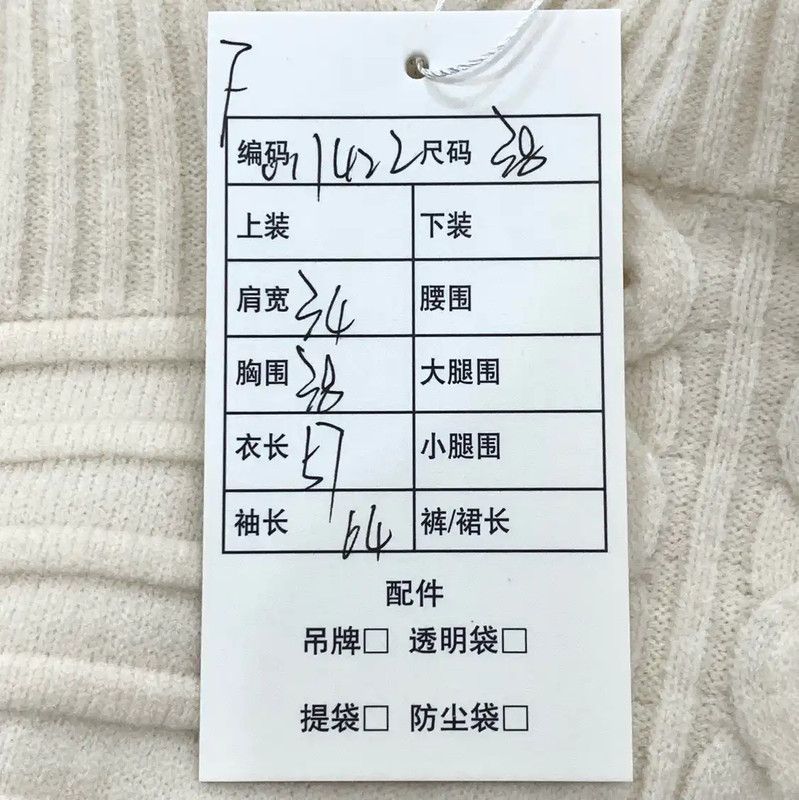 F
编码 071422 尺码 38
上装 下装
肩宽 34 腰围
胸围 38 大腿围
衣长 57 小腿围
袖长 64 裤/裙长
配件
吊牌□ 透明袋□
提袋□ 防尘袋□